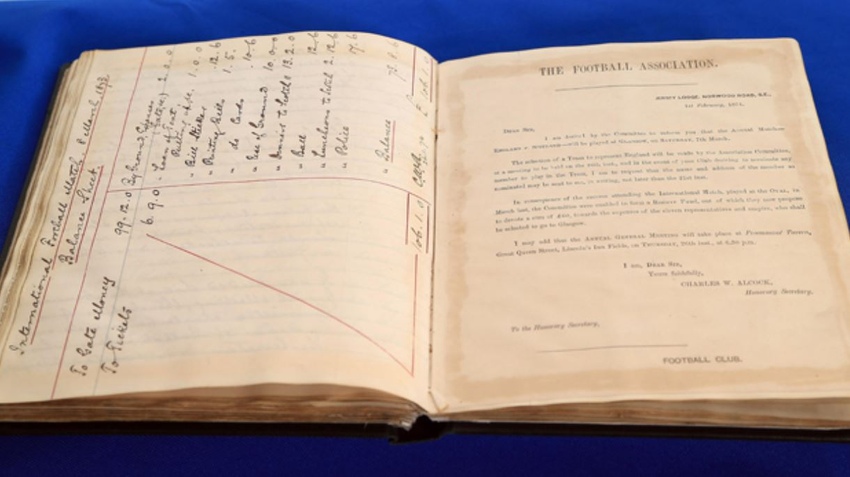 International Football Match 8 March 1873
Balance Sheet
To Gate Money 99.12.0
To Tickets 6.9.0
106.1.0
By Ground Expenses
" Loan of Tent 2.0.0
" Bill Sticker 1.0.0
" Printing Bills 12.6
" do Cards 1.5.
" Use of Ground 10.0.0
" Ball
" Luncheons to
" Police
" Balance
106.1.0
THE FOOTBALL ASSOCIATION.
1st February, 1874.
DEAR SIR,
I am desired by the Committee to inform you that the Annual Matches
ENGLAND v. SCOTLAND—will be played at GLASGOW, on SATURDAY, 7th March.
The selection of a Team to represent England will be made by the Association Committee,
at a meeting to be held on the
member to play in the Team, I am to request that the name and address of the member so
nominated may be sent to me, in writing, not later than the 21st inst.
In consequence of the success attending the International Match, played at the OVAL, in
March last, the Committee were enabled to form a Reserve Fund, out of which they now propose
to devote a sum of towards the expenses of the eleven representatives and umpire, who shall
be selected to go to Glasgow.
I may add that the ANNUAL GENERAL MEETING will take place at Freemasons' Tavern,
Great Queen Street, Lincoln's Inn Fields, on THURSDAY, 26th inst., at 6.30 p.m.
I am, DEAR SIR,
Yours faithfully,
CHARLES W. ALCOCK,
Honorary Secretary.
To the Honorary Secretary,
FOOTBALL CLUB.